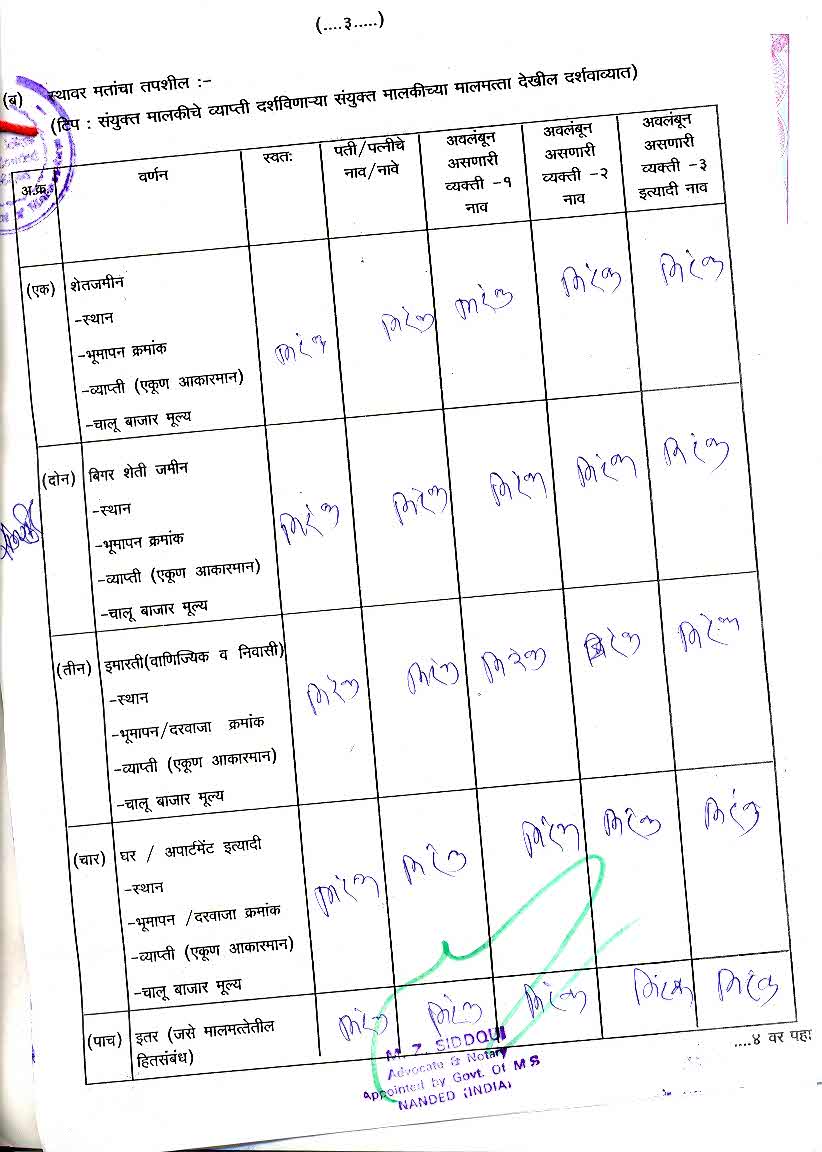 (....३.....)
(ब) स्थावर मतांचा तपशील :-
(टिप : संयुक्त मालकीचे व्याप्ती दर्शविणाऱ्या संयुक्त मालकीच्या मालमत्ता देखील दर्शवाव्यात)
अ.क्र. वर्णन स्वतः पती/पत्नीचे नाव/नावे अवलंबून असणारी व्यक्ती -१ नाव अवलंबून असणारी व्यक्ती -२ नाव अवलंबून असणारी व्यक्ती -३ इत्यादी नाव
(एक) शेतजमीन
-स्थान
-भूमापन क्रमांक
-व्याप्ती (एकूण आकारमान)
-चालू बाजार मूल्य
निरंक निरंक निरंक निरंक निरंक
(दोन) बिगर शेती जमीन
-स्थान
-भूमापन क्रमांक
-व्याप्ती (एकूण आकारमान)
-चालू बाजार मूल्य
निरंक निरंक निरंक निरंक निरंक
(तीन) इमारती(वाणिज्यिक व निवासी)
-स्थान
-भूमापन/दरवाजा क्रमांक
-व्याप्ती (एकूण आकारमान)
-चालू बाजार मूल्य
निरंक निरंक निरंक निरंक निरंक
(चार) घर / अपार्टमेंट इत्यादी
-स्थान
-भूमापन /दरवाजा क्रमांक
-व्याप्ती (एकूण आकारमान)
-चालू बाजार मूल्य
निरंक निरंक निरंक निरंक निरंक
(पाच) इतर (जसे मालमत्तेतील
हितसंबंध)
निरंक निरंक निरंक निरंक निरंक
M. Z. SIDDQUI
Advocate & Notary
Appointed by Govt. Of M S
NANDED (INDIA)
....४ वर पहा